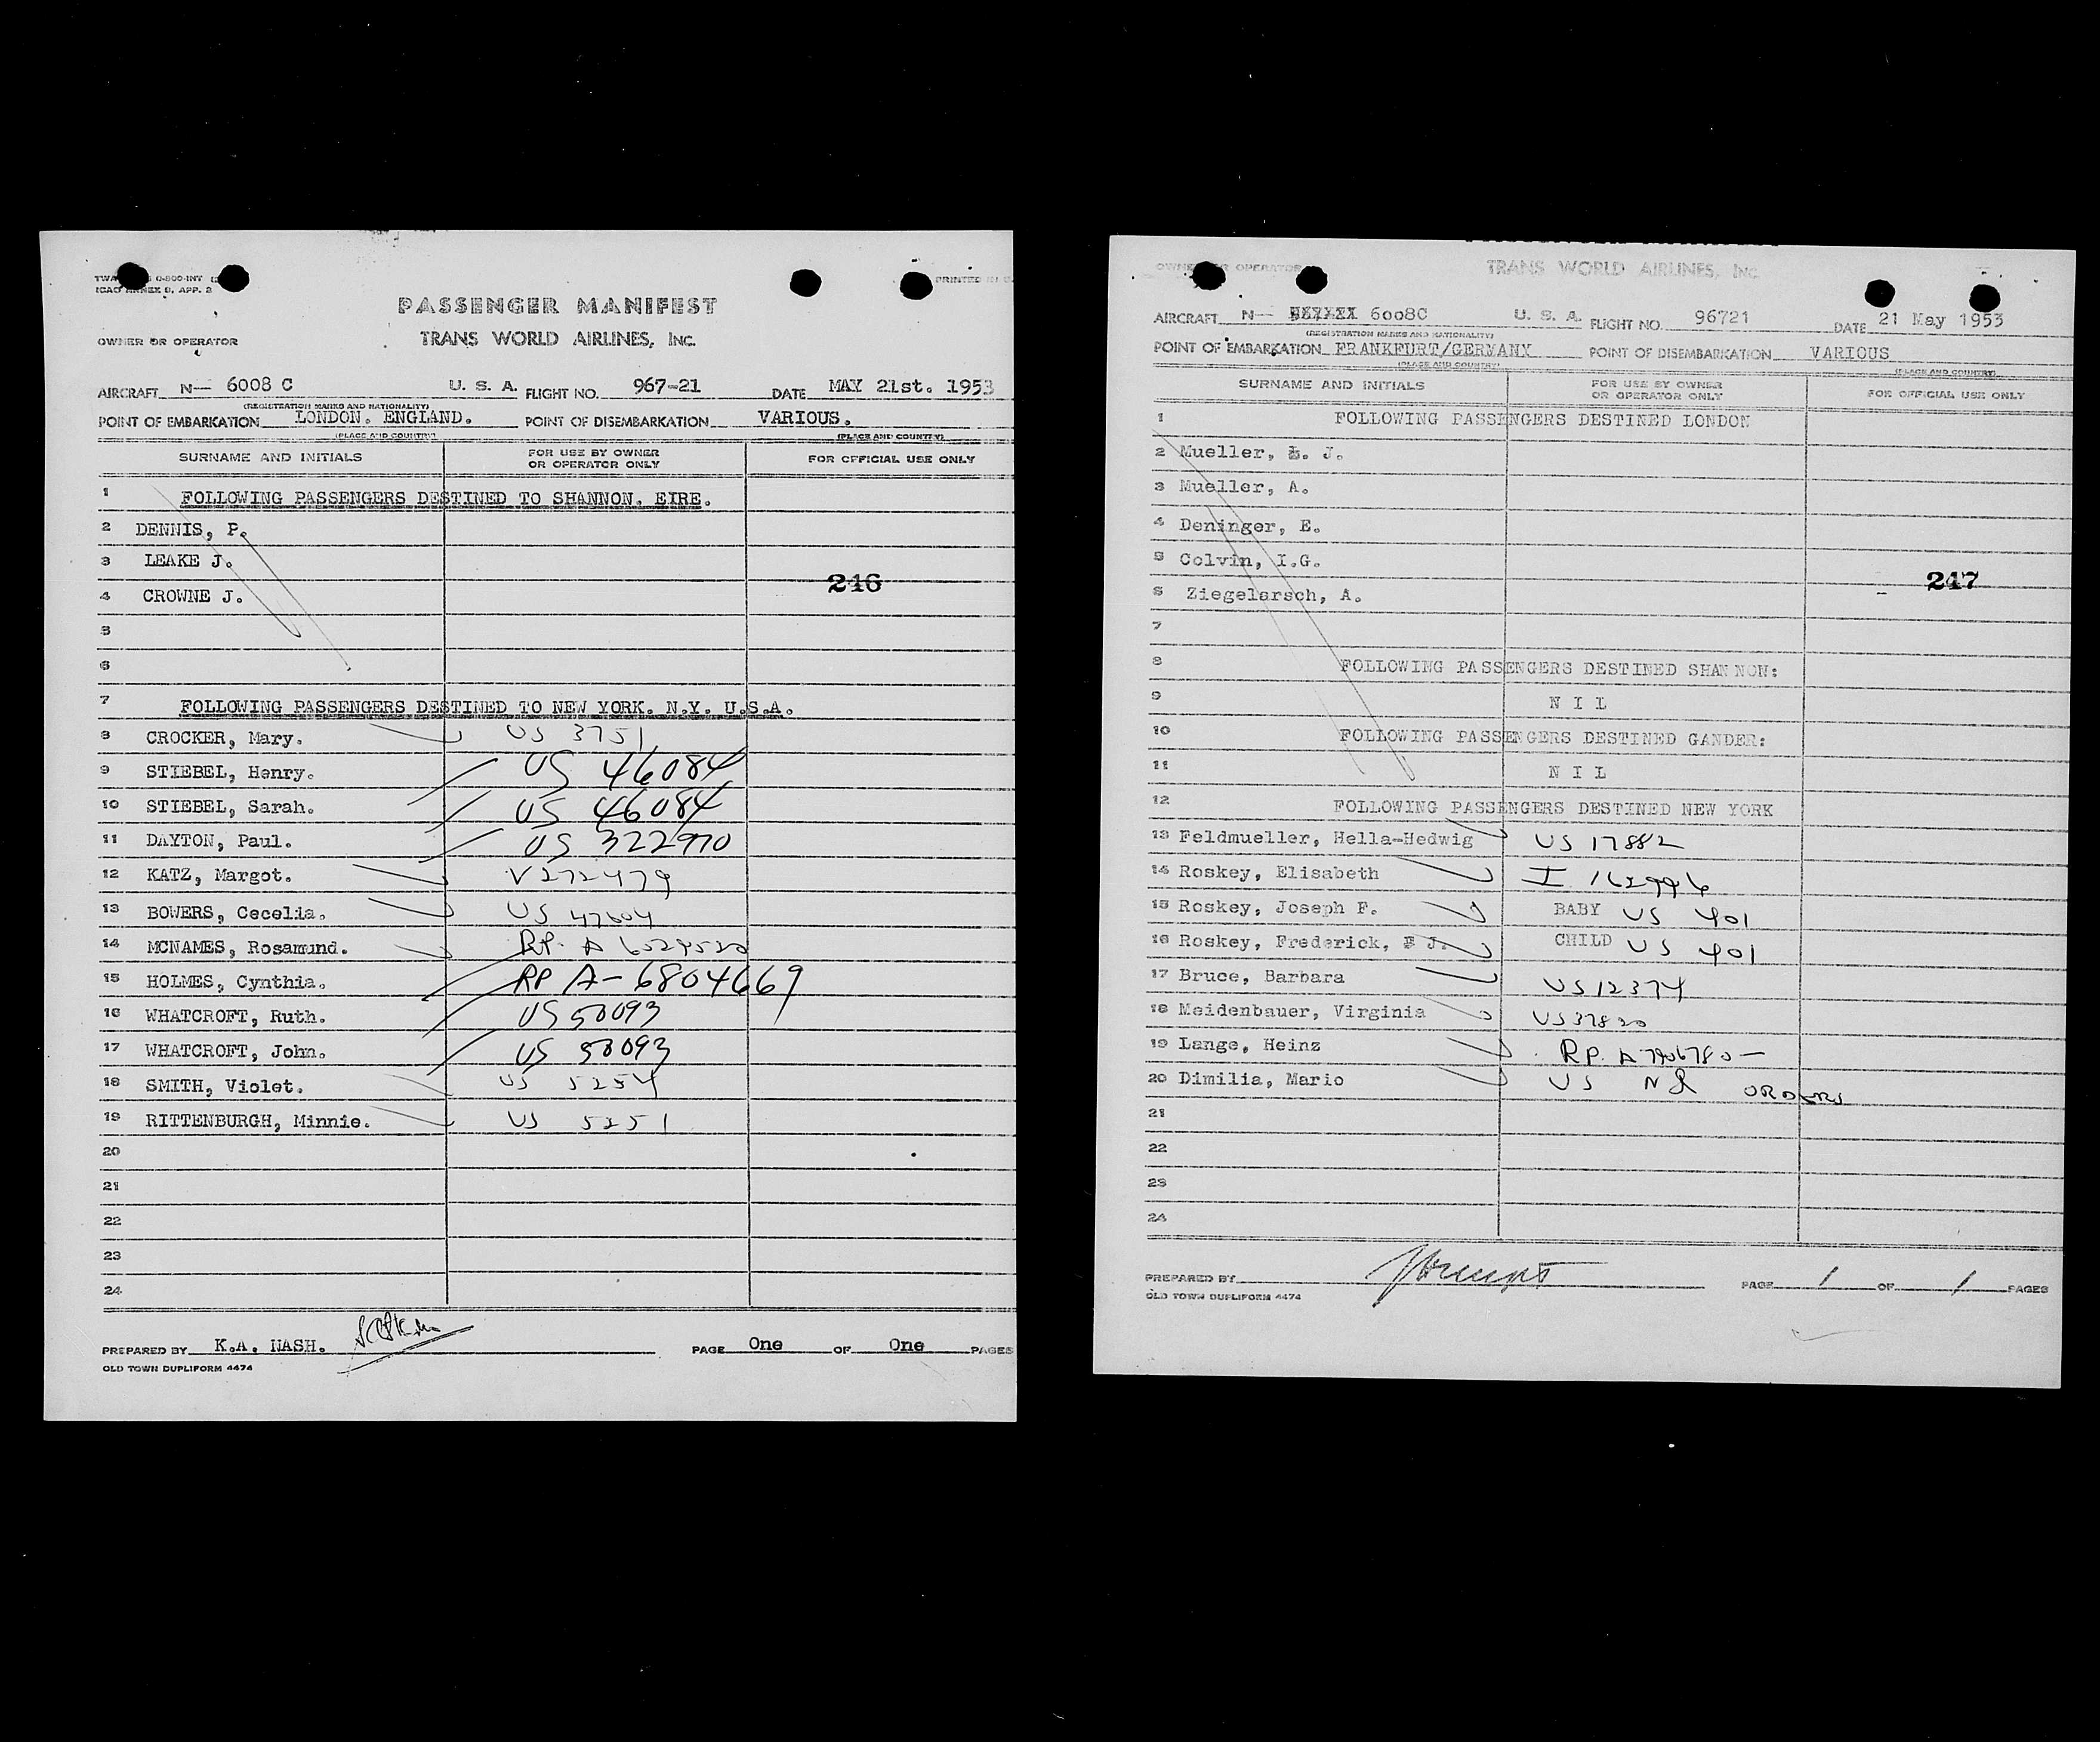 ICAO ANNEX 9, APP. 2
PRINTED IN
PASSENGER MANIFEST
OWNER OR OPERATOR TRANS WORLD AIRLINES, INC.
AIRCRAFT N— 6008 C U. S. A. FLIGHT NO. 967-21 DATE MAY 21st. 1953
(REGISTRATION MARKS AND NATIONALITY)
POINT OF EMBARKATION LONDON. ENGLAND. POINT OF DISEMBARKATION VARIOUS.
(PLACE AND COUNTRY) (PLACE AND COUNTRY)
SURNAME AND INITIALS FOR USE BY OWNER OR OPERATOR ONLY FOR OFFICIAL USE ONLY
1 FOLLOWING PASSENGERS DESTINED TO SHANNON. EIRE.
2 DENNIS, P.
3 LEAKE J.
246
4 CROWNE J.
5
6
7 FOLLOWING PASSENGERS DESTINED TO NEW YORK. N.Y. U.S.A.
8 CROCKER, Mary. US 3751
9 STIEBEL, Henry. US 46084
10 STIEBEL, Sarah. US 46084
11 DAYTON, Paul. US 322970
12 KATZ, Margot. V272479
13 BOWERS, Cecelia. US 47604
14 MCNAMES, Rosamund. RP. A 6029520
15 HOLMES, Cynthia. RP A-6804669
16 WHATCROFT, Ruth. US 50093
17 WHATCROFT, John. US 50093
18 SMITH, Violet. US 5254
19 RITTENBURGH, Minnie. US 5251
20
21
22
23
24
PREPARED BY K.A. NASH. PAGE One OF One PAGES
OLD TOWN DUPLIFORM 4474
OWNER OR OPERATOR TRANS WORLD AIRLINES, INC.
AIRCRAFT N— 6008C U. S. A. FLIGHT NO. 96721 DATE 21 May 1953
(REGISTRATION MARKS AND NATIONALITY)
POINT OF EMBARKATION FRANKFURT/GERMANY POINT OF DISEMBARKATION VARIOUS
(PLACE AND COUNTRY) (PLACE AND COUNTRY)
SURNAME AND INITIALS FOR USE BY OWNER OR OPERATOR ONLY FOR OFFICIAL USE ONLY
1 FOLLOWING PASSENGERS DESTINED LONDON
2 Mueller, L. J.
3 Mueller, A.
4 Deninger, E.
5 Colvin, I.G.
247
6 Ziegelarsch, A.
7
8 FOLLOWING PASSENGERS DESTINED SHANNON:
9 N I L
10 FOLLOWING PASSENGERS DESTINED GANDER:
11 N I L
12 FOLLOWING PASSENGERS DESTINED NEW YORK
13 Feldmueller, Hella-Hedwig US 17882
14 Roskey, Elisabeth I 162996
15 Roskey, Joseph F. BABY US 401
16 Roskey, Frederick, J. CHILD US 401
17 Bruce, Barbara US 12374
18 Meidenbauer, Virginia US 37820
19 Lange, Heinz RP. A 7906780 —
20 Dimilia, Mario US N& ORDERS
21
22
23
24
PREPARED BY PAGE 1 OF 1 PAGES
OLD TOWN DUPLIFORM 4474